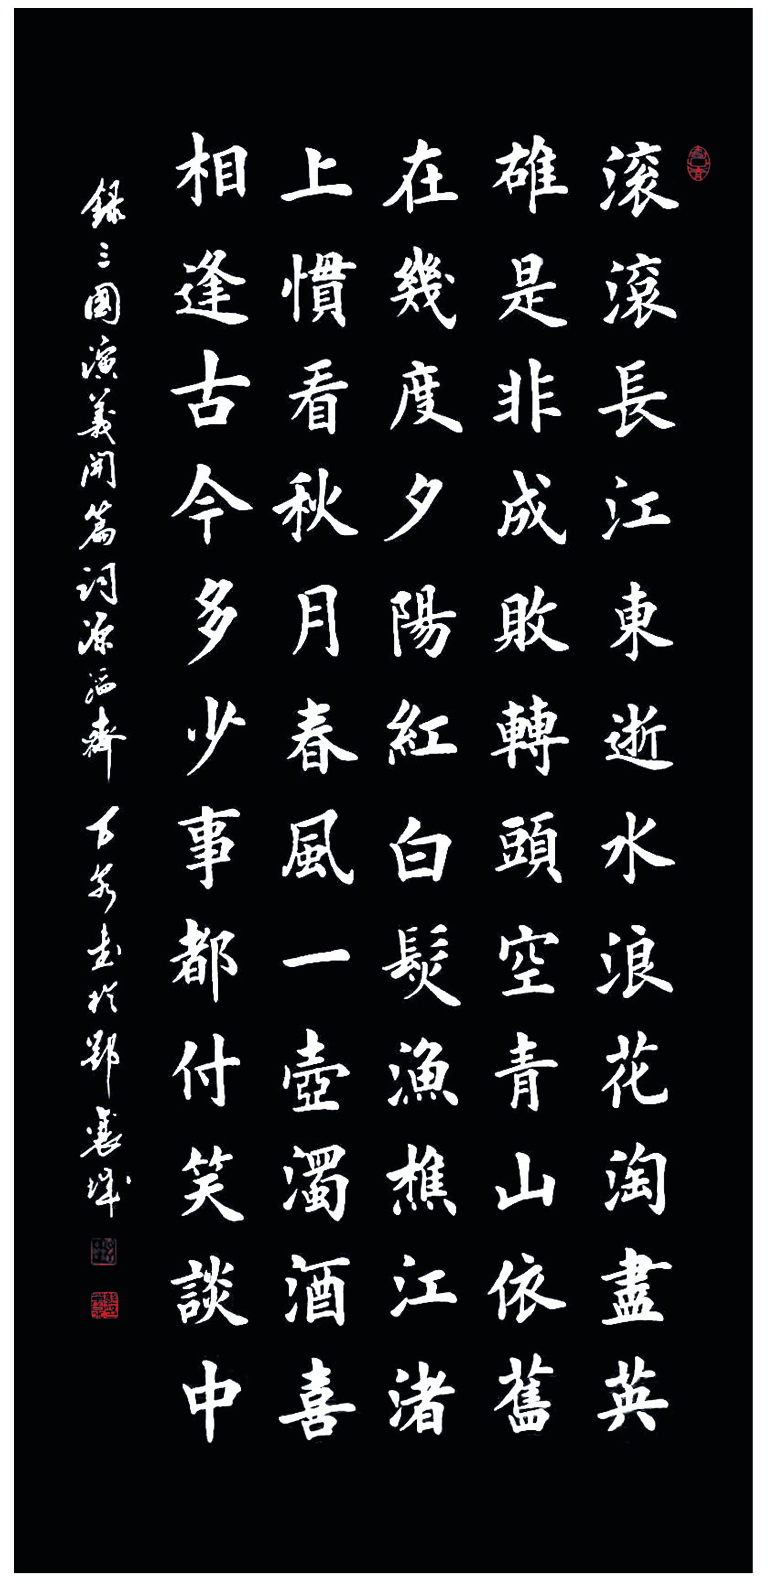 滚滾長江東逝水浪花淘盡英
雄是非成敗轉頭空青山依舊
在幾度夕陽紅白髮漁樵江渚
上慣看秋月春風一壺濁酒喜
相逢古今多少事都付笑談中
録三國演義開篇詞